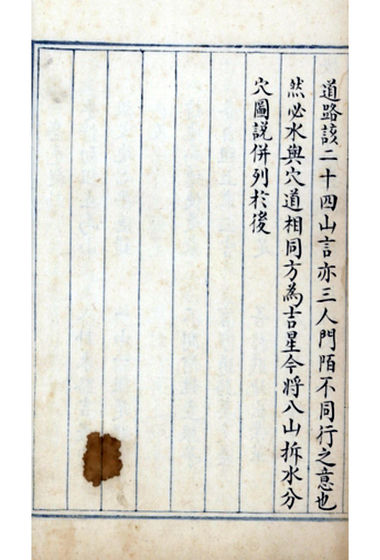 道路該二十四山言亦三人門陌不同行之意也
然必水與穴道相同方為吉星今將八山拆水分
穴圖説併列扵後